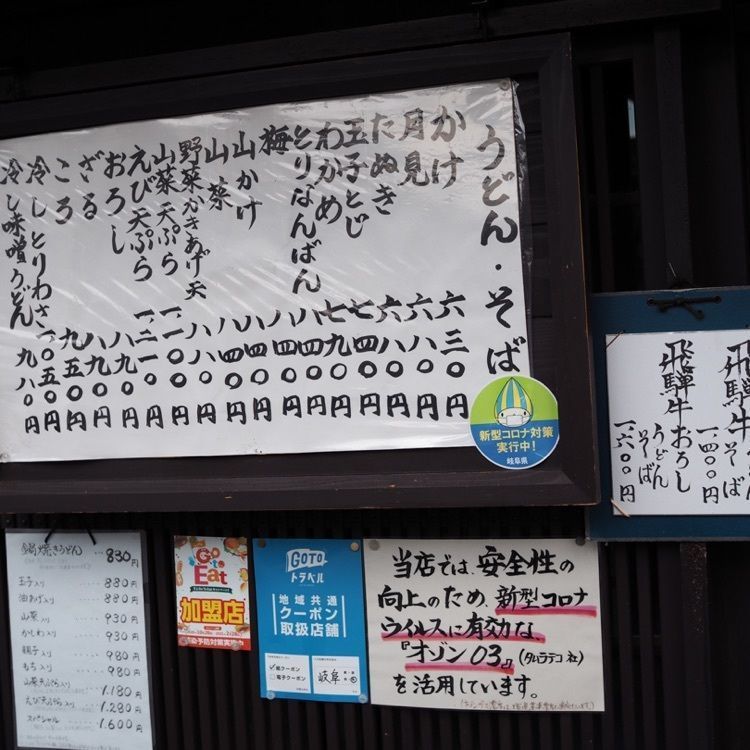 うどん・そば
かけ 六三〇円
月見 六八〇円
たぬき 六八〇円
玉子とじ 七四〇円
わかめ 七九〇円
とりなんばん 八四〇円
梅 八四〇円
山かけ 八四〇円
山菜 八四〇円
野菜かきあげ天 八八〇円
山菜天ぷら 一一〇〇円
えび天ぷら 一二一〇円
おろし 八九〇円
ざる 八九〇円
ころ 九五〇円
冷しとりわさ 一〇五〇円
冷し味噌うどん 九八〇円
新型コロナ対策
実行中!
岐阜県
飛騨牛そば
一四〇〇円
飛騨牛おろし
うどん
そば
一六〇〇円
鍋焼きうどん 830円
玉子入り 880円
油あげ入り 880円
山菜入り 930円
かしわ入り 930円
親子入り 980円
もち入り 980円
山菜天ぷら入り 1.180円
えび天ぷら入り 1.280円
スペシャル 1.600円
Go To
Eat
加盟店
感染予防対策実施中
GOTO
トラベル
地域共通
クーポン
取扱店舗
紙クーポン
電子クーポン
岐阜
当店では、安全性の
向上のため、新型コロナ
ウイルスに有効な、
『オゾン03』(タムラテコ社)
を活用しています。